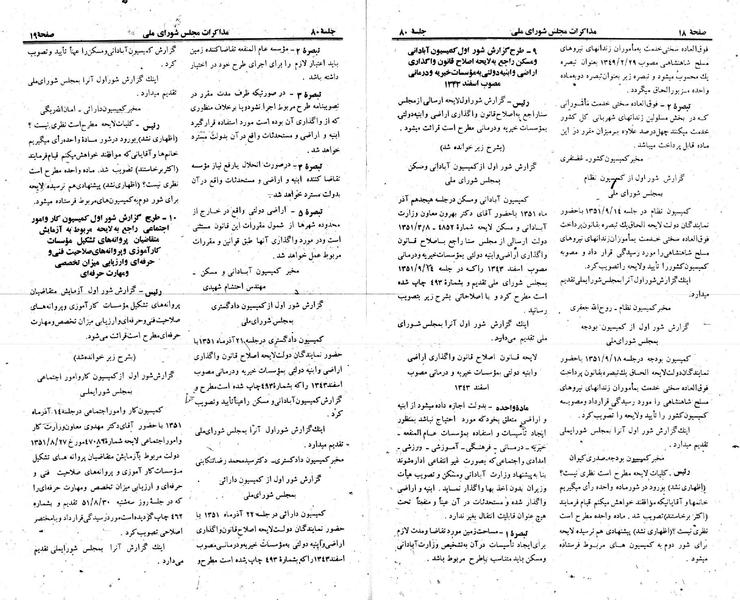 صفحه ۱۸
مذاکرات مجلس شورای ملی
جلسه ۸۰
فوق‌العاده سختی خدمت به‌مأموران زندانهای نیروهای
مسلح شاهنشاهی مصوب ۱۳۴۹/۲/۲۹ بعنوان تبصره
یک محسوب میشود و تبصره زیر بعنوان تبصره دو به ماده
واحده مزبور الحاق میگردد.
تبصره ۲ - فوق‌العاده سختی خدمت مأمورانی
که در بخش مسئولین زندانهای شهربانی کل کشور
خدمت میکنند چهل درصد علاوه بر میزان مقرر در این
ماده قابل پرداخت میباشد.
مخبر کمیسیون کشور. غضنفری
گزارش شور اول از کمیسیون نظام
به‌مجلس شورای ملی
کمیسیون نظام در جلسه ۱۳۵۱/۹/۱۴ با حضور
نمایندگان دولت لایحه الحاق یک تبصره بقانون پرداخت
فوق‌العاده سختی خدمت به‌مأموران زندانهای نیروهای
مسلح شاهنشاهی را مورد رسیدگی قرار داد و مصوبه
کمیسیون کشور را تأیید و لایحه را تصویب کرد.
اینک گزارش شور اول آنرا به‌مجلس شورای ملی تقدیم
میدارد.
مخبر کمیسیون نظام - روح‌الله جعفری
گزارش شور اول از کمیسیون بودجه
به‌مجلس شورای ملی
کمیسیون بودجه در جلسه ۱۳۵۱/۹/۱۸ با حضور
نمایندگان دولت لایحه الحاق یک تبصره بقانون پرداخت
فوق‌العاده سختی خدمت به‌مأموران زندانهای نیروهای
مسلح شاهنشاهی را مورد رسیدگی قرار داد و مصوبه
کمیسیون کشور را تأیید و لایحه را تصویب کرد.
اینک گزارش شور اول آنرا به‌مجلس شورای ملی
تقدیم میدارد.
مخبر کمیسیون بودجه. صدری کیوان
رئیس - کلیات لایحه مطرح است نظری نیست؟
(اظهاری نشد) بورود در شور ماده واحده رأی میگیریم
خانمها و آقایانیکه موافقند خواهش میکنم قیام فرمایند
(اکثر برخاستند) تصویب شد. ماده واحده مطرح است
نظری نیست؟ (اظهاری نشد) پیشنهادی هم نرسیده لایحه
برای شور دوم به کمیسیون های مربوط فرستاده
میشود.
۹ - طرح گزارش شور اول کمیسیون آبادانی
ومسکن راجع به لایحه اصلاح قانون واگذاری
اراضی وابنیه دولتی به‌مؤسسات خیریه ودرمانی
مصوب اسفند ۱۳۴۳
رئیس - گزارش شور اول لایحه ارسالی از مجلس
سنا راجع به اصلاح قانون واگذاری اراضی و ابنیه دولتی
به‌مؤسسات خیریه ودرمانی مطرح است قرائت میشود.
(بشرح زیر خوانده شد)
گزارش شور اول از کمیسیون آبادانی ومسکن
به‌مجلس شورای ملی
کمیسیون آبادانی ومسکن در جلسه هیجدهم آذر
ماه ۱۳۵۱ با حضور آقای دکتر بهرون معاون وزارت
آبادانی و مسکن لایحه ۴۸۵۲ - ۱۳۵۱/۳/۸
دولت ارسالی از مجلس سنا راجع به اصلاح قانون
واگذاری اراضی وابنیه دولتی بمؤسسات خیریه ودرمانی
مصوب اسفند ۱۳۴۳ را که در جلسه ۱۳۵۱/۹/۱۴
مجلس شورای ملی تقدیم و بشماره ۴۹۳ چاپ شده
است مطرح کرد و با اصلاحاتی بشرح زیر بتصویب
رسانید.
اینک گزارش شور اول آنرا به‌مجلس شورای
ملی تقدیم می‌دارد.
لایحه قانون اصلاح قانون واگذاری اراضی
وابنیه دولتی بمؤسسات خیریه و درمانی مصوب
اسفند ۱۳۴۳
ماده واحده - بدولت اجازه داده میشود از ابنیه
و اراضی متعلق بخود که مورد احتیاج نباشد بمنظور
ایجاد تأسیسات و استفاده بمؤسسات عام‌المنفعه -
خیریه - درمانی - فرهنگی - آموزشی - ورزشی -
امدادی و اجتماعی که بصورت غیر انتفاعی اداره شوند
بنا به پیشنهاد وزارت آبادانی ومسکن و تصویب هیأت
وزیران بدون اخذ بها واگذار نماید. ابنیه و اراضی
واگذار شده و مستحدثات در آن عیناً و منفعتاً تحت
هیچ عنوان قابلیت انتقال بغیر ندارد.
تبصره ۱ - مساحت زمین مورد تقاضا و مدت لازم
برای ایجاد تأسیسات در آن به‌تشخیص وزارت آبادانی
و مسکن باید متناسب با طرح مربوط باشد.
جلسه ۸۰
مذاکرات مجلس شورای ملی
صفحه ۱۹
تبصره ۲ - مؤسسه عام المنفعه تقاضاکننده زمین
باید اعتبار لازم را برای اجرای طرح خود در اختیار
داشته باشد.
تبصره ۳ - در صورتیکه ظرف مدت مقرر در
تصویبنامه طرح مربوط اجرا نشود یا برخلاف منظوری
که از واگذاری آن بوده است مورد استفاده قرار گیرد
ابنیه و اراضی ومستحدثات واقع درآن بدولت مسترد
خواهد شد.
تبصره ۴ - درصورت انحلال یا رفع نیاز مؤسسه
تقاضا کننده ابنیه و اراضی و مستحدثات واقع درآن به
دولت مسترد خواهد شد.
تبصره ۵ - اراضی دولتی واقع در خارج از
محدوده شهرها از شمول مقررات این قانون مستثنی
است ودر مورد واگذاری آنها طبق قوانین و مقررات
مربوط عمل خواهد شد.
مخبر کمیسیون آبادانی و مسکن -
مهندس احتشام شهیدی
گزارش شور اول از کمیسیون دادگستری
بمجلس شورای‌ملی
کمیسیون دادگستری در جلسه ۲۱ آذر ماه ۱۳۵۱ با
حضور نمایندگان دولت لایحه اصلاح قانون واگذاری
اراضی و ابنیه دولتی بمؤسسات خیریه ودرمانی مصوب
اسفند ۱۳۴۳ را که بشماره ۴۹۳ چاپ شده است مطرح و
گزارش کمیسیون آبادانی و مسکن را عیناً تأیید و تصویب
کرد.
اینک گزارش شور اول آنرا بمجلس شورای ملی
تقدیم میدارد.
مخبر کمیسیون دادگستری - دکتر سید محمد رضا تکابنی
گزارش شور اول از کمیسیون دارائی
بمجلس شورای‌ملی
کمیسیون دارائی در جلسه ۲۲ آذر ماه ۱۳۵۱ با
حضور نمایندگان دولت لایحه اصلاح قانون واگذاری
اراضی وابنیه دولتی به‌مؤسسات خیریه ودرمانی مصوب
اسفند ۱۳۴۳ را که بشماره ۴۹۳ چاپ شده است مطرح و
گزارش کمیسیون آبادانی ومسکن را عیناً تأیید و تصویب
کرد.
اینک گزارش شور اول آنرا بمجلس شورای‌ملی
تقدیم میدارد.
مخبر کمیسیون دارائی - امان‌اله ریگی
رئیس - کلیات لایحه مطرح است نظری نیست؟
(اظهاری نشد) بورود در شور ماده واحده رأی میگیریم
خانم‌ها و آقایانی که موافقند خواهش میکنم قیام فرمایند
(اکثر برخاستند) تصویب شد. ماده واحده مطرح است
نظری نیست؟ (اظهاری نشد) پیشنهادی هم نرسیده لایحه
برای شور دوم به کمیسیونهای مربوط فرستاده میشود.
۱۰ - طرح گزارش شور اول کمیسیون کار وامور
اجتماعی راجع به لایحه مربوط به آزمایش
متقاضیان پروانه‌های تشکیل مؤسسات
کارآموزی و پروانه‌های صلاحیت فنی و
حرفه‌ای وارزیابی میزان تخصصی
ومهارت حرفه‌ای
رئیس - گزارش شور اول آزمایش متقاضیان
پروانه‌های تشکیل مؤسسات کارآموزی و پروانه‌های
صلاحیت فنی و حرفه‌ای وارزیابی میزان تخصص ومهارت
حرفه‌ای مطرح است قرائت میشود.
(بشرح زیر خوانده شد)
گزارش شور اول از کمیسیون کار وامور اجتماعی
بمجلس شورایملی
کمیسیون کار وامور اجتماعی در جلسه ۱۴ آذر ماه
۱۳۵۱ با حضور آقای دکتر مهدوی معاون وزارت کار
وامور اجتماعی لایحه شماره ۴۷۰۸۲ مورخ ۱۳۵۱/۸/۲۷
دولت مربوط بآزمایش متقاضیان پروانه های تشکیل
مؤسسات کار آموزی و پروانه‌های صلاحیت فنی و
حرفه‌ای و ارزیابی میزان تخصص ومهارت حرفه‌ای را
که در جلسه روز سه‌شنبه ۵۱/۸/۳۰ تقدیم و بشماره
۴۶۲ چاپ گردیده است مورد رسیدگی قرار داد و با مختصر
اصلاحی تصویب کرد.
اینک گزارش شور اول آنرا بمجلس شورای‌ملی تقدیم
می‌دارد.